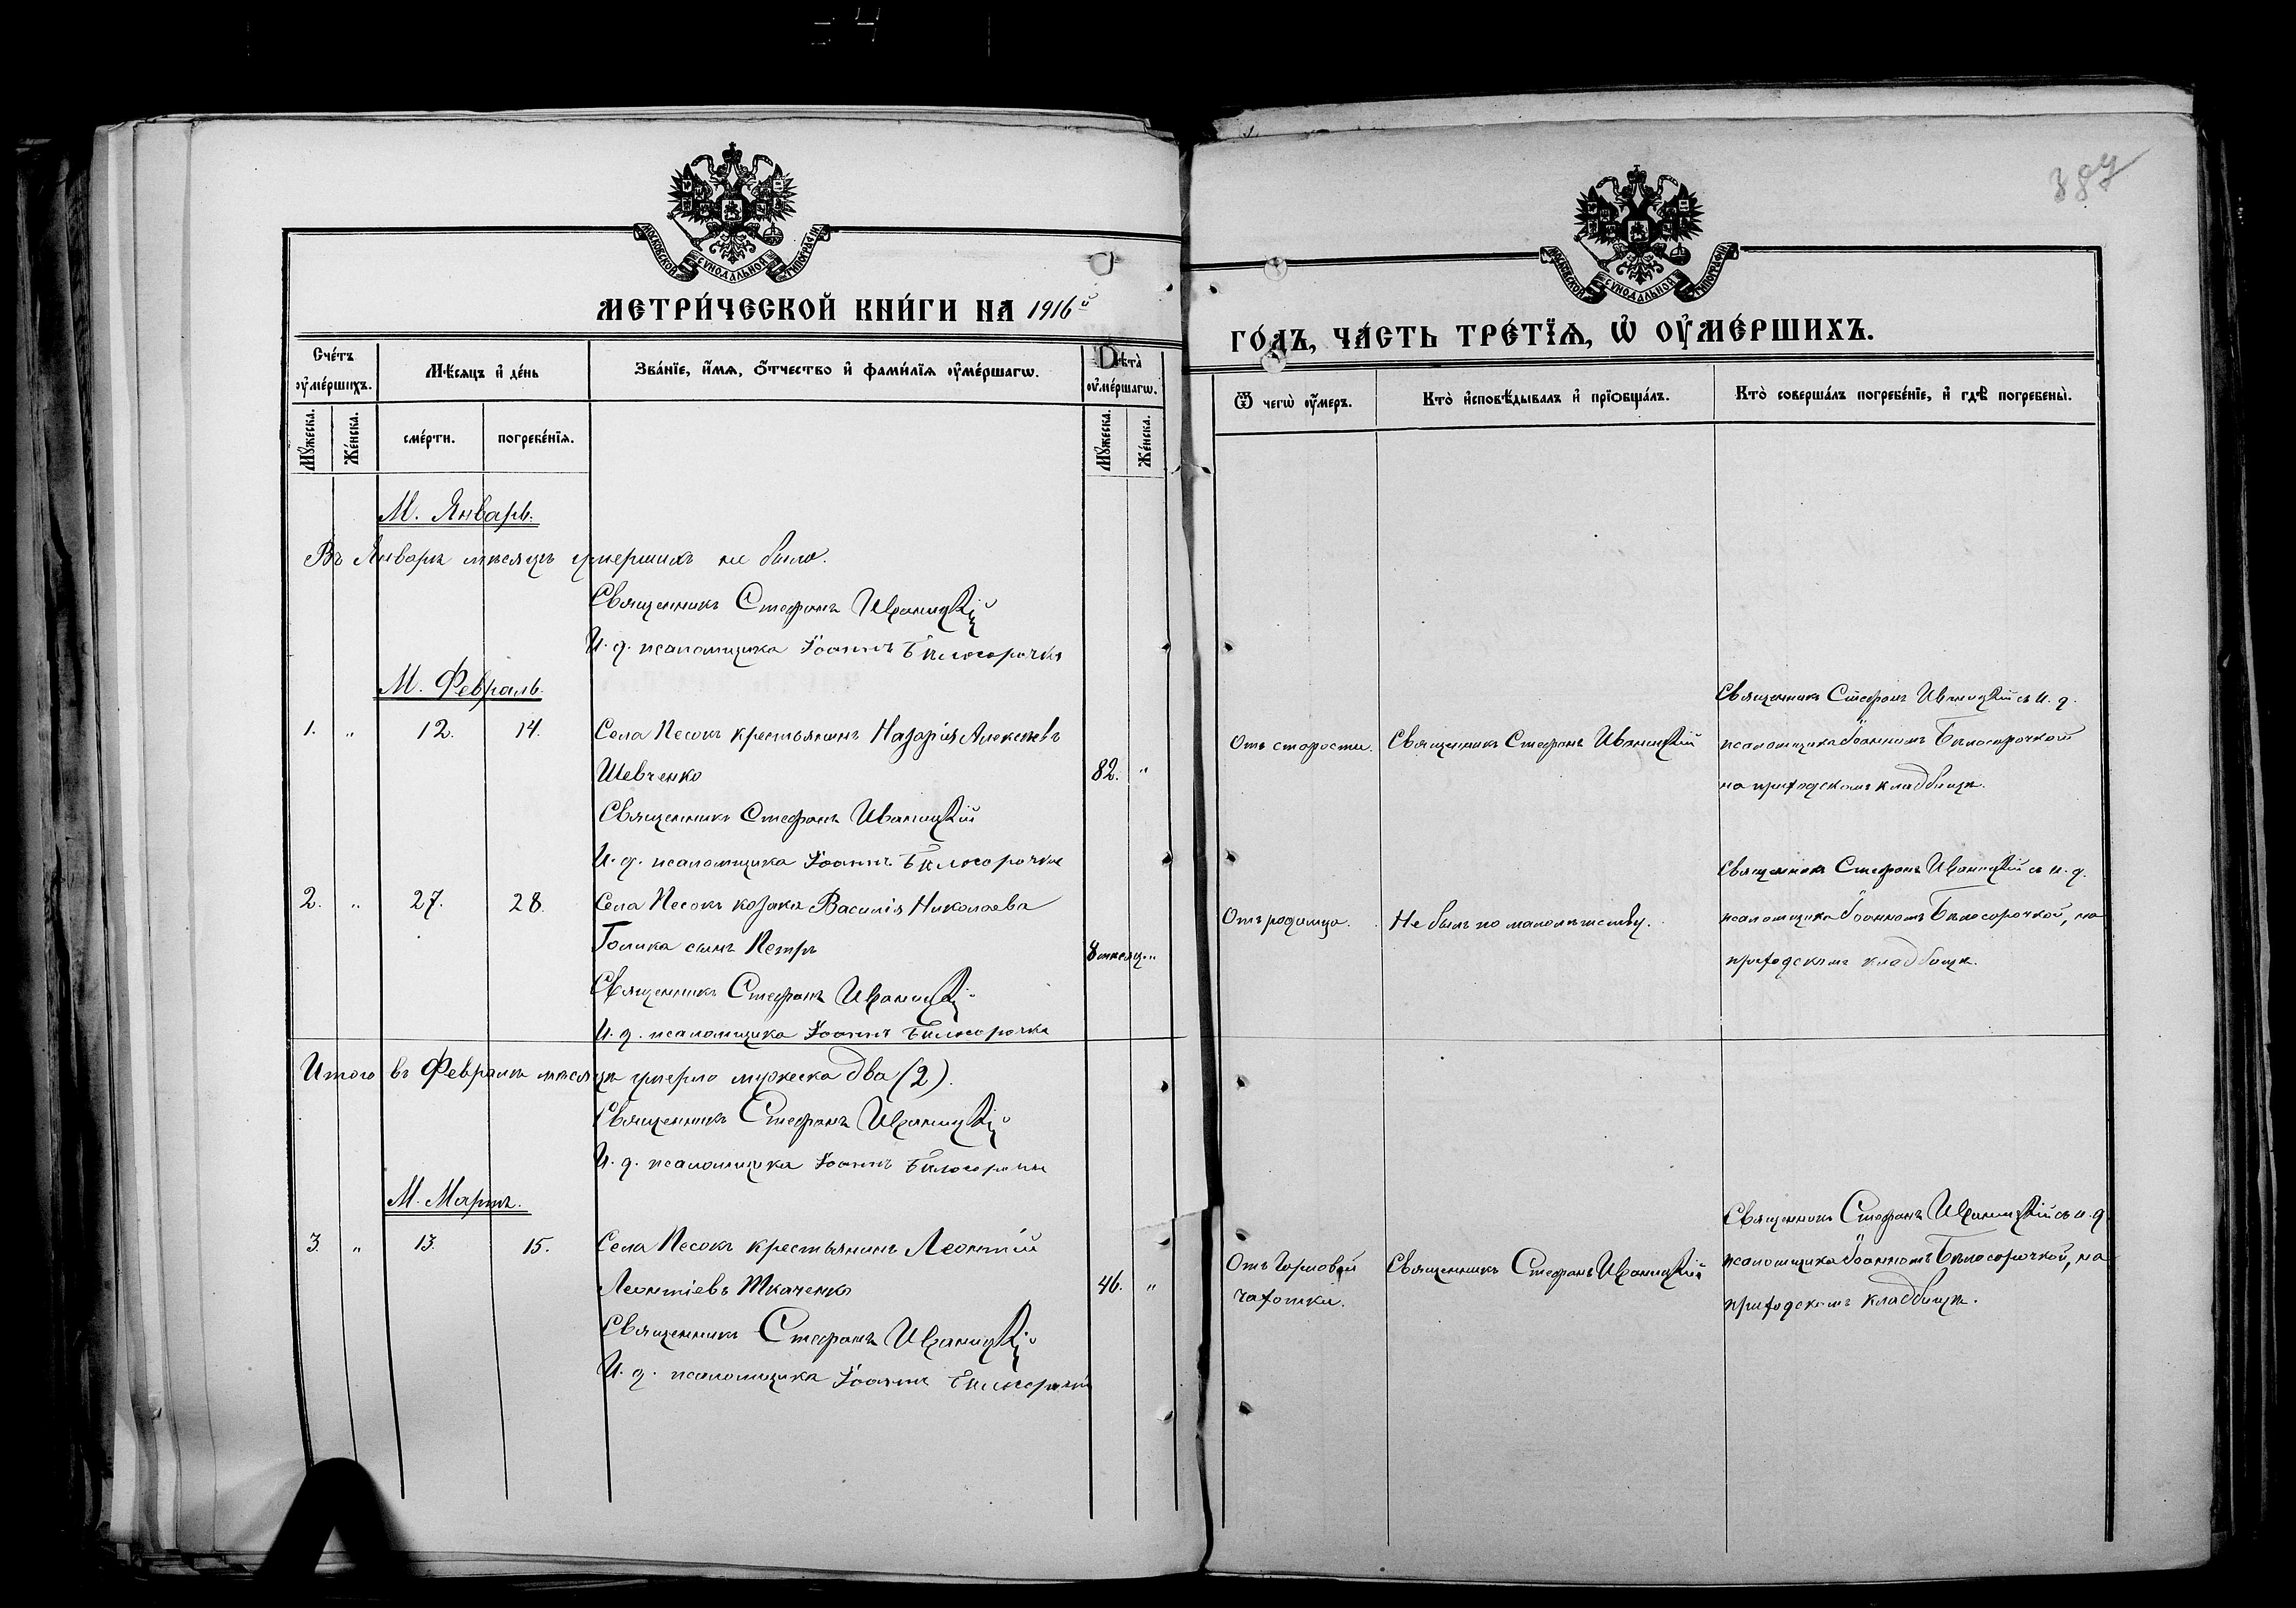 387
МОСКОВСКОЙ СѴНОДАЛЬНОЙ ТИПОГРАФІИ
МОСКОВСКОЙ СѴНОДАЛЬНОЙ ТИПОГРАФІИ
МЕТРИ́ЧЕСКОЙ КНИ́ГИ НА 1916й
ГО́ДЪ, ЧА́СТЬ ТРЕ́ТЇѦ, Ѽ ОУ҆МЕ́РШИХЪ.
Сче́тъ оу҆ме́ршихъ.
Мѣ́сяцъ и҆ де́нь
Зва́нїе, и҆́мѧ, о҆́тчество и҆ фами́лїѧ оу҆ме́ршагѡ.
Лѣта̀ оу҆ме́ршагѡ.
Мꙋ́жеска.
Же́нска.
сме́рти.
погребе́нїѧ.
Мꙋ́жеска.
Же́нска.
Ѿ чегѡ̀ оу҆́меръ.
Кто̀ и҆сповѣ́дывалъ и҆ прїѡбща́лъ.
Кто̀ соверша́лъ погребе́нїе, и҆ гдѣ̀ погребены̀.
М. Январь.
Въ Январѣ мѣсяцѣ умершихъ не было.
Священникъ Стефанъ Иваницкій
И. д. псаломщика Іоаннъ Бѣлосорочка
М. Февраль.
1. " 12. 14. Села Песокъ крестьянинъ Назарій Алексѣевъ
Шевченко 82. "
Отъ старости. Священникъ Стефанъ Иваницкій
Священникъ Стефанъ Иваницкій съ и. д.
псаломщика Іоанномъ Бѣлосорочкой
на приходскомъ кладбищѣ.
Священникъ Стефанъ Иваницкій
И. д. псаломщика Іоаннъ Бѣлосорочка
2. " 27. 28. Села Песокъ козака Василія Николаева
Голика сынъ Петръ 8 мѣсяц. "
Отъ родимца. Не былъ по малолѣтству.
Священникъ Стефанъ Иваницкій съ и. д.
псаломщика Іоанномъ Бѣлосорочкой, на
приходскомъ кладбищѣ.
Священникъ Стефанъ Иваницкій
И. д. псаломщика Іоаннъ Бѣлосорочка
Итого въ Февралѣ мѣсяцѣ умерло мужеска два (2).
Священникъ Стефанъ Иваницкій
И. д. псаломщика Іоаннъ Бѣлосорочка
М. Мартъ.
3. " 13. 15. Села Песокъ крестьянинъ Леонтій
Леонтіевъ Ткаченко 46. "
Отъ горловой
чахотки.
Священникъ Стефанъ Иваницкій
Священникъ Стефанъ Иваницкій съ и. д.
псаломщика Іоанномъ Бѣлосорочкой, на
приходскомъ кладбищѣ.
Священникъ Стефанъ Иваницкій
И. д. псаломщика Іоаннъ Бѣлосорочка